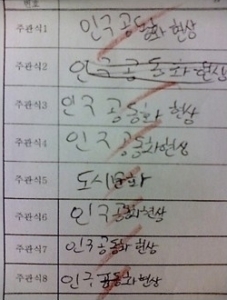 번호
주관식1 인구 공동화 현상
주관식2 인구 공동화 현상
주관식3 인구 공동화 현상
주관식4 인구 공동화 현상
주관식5 도시문화
주관식6 인구 공동화현상
주관식7 인구 공동화 현상
주관식8 인구 공동화 현상